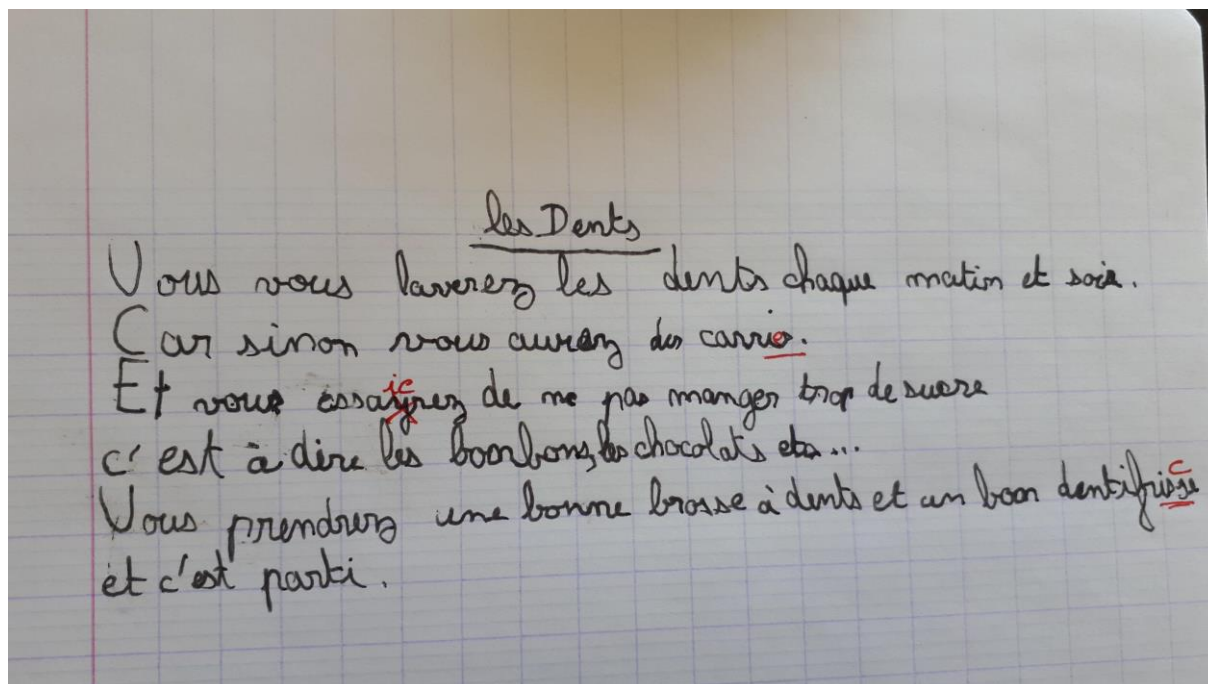 les Dents
Vous vous laverez les dents chaque matin et soir.
Car sinon vous aurez des carries.
Et vous essaierez de ne pas manger trop de sucre
c'est à dire les boonbons, les chocolats etc...
Vous prendrez une bonne brosse à dents et un boon dentifrisse
et c'est parti.